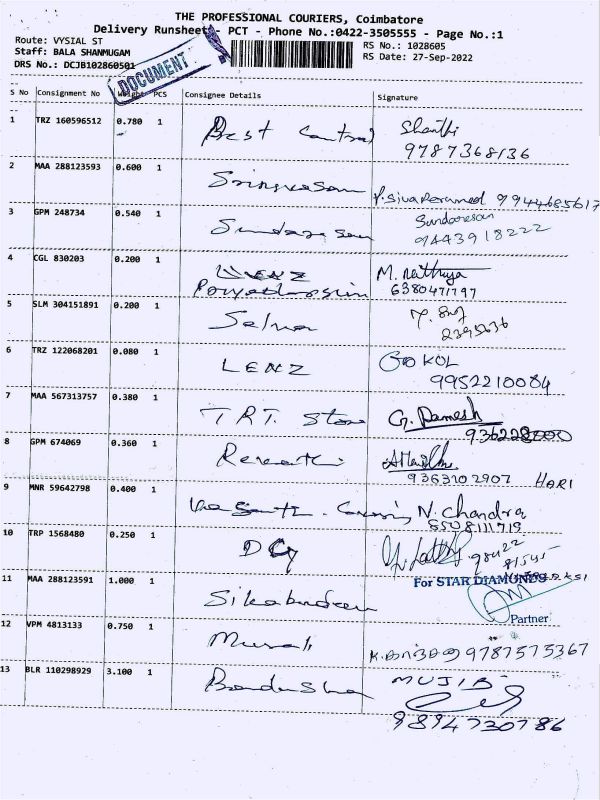 THE PROFESSIONAL COURIERS, Coimbatore
Delivery Runsheet - PCT - Phone No.:0422-3505555 - Page No.:1
Route: VYSIAL ST
RS No.: 1028605
Staff: BALA SHANMUGAM
RS Date: 27-Sep-2022
DRS No.: DCJB102860501
DOCUMENT
S No Consignment No Weight PCS Consignee Details Signature
1 TRZ 160596512 0.780 1 Best Shanthi
9787368136
2 MAA 288123593 0.600 1 Srinivasan 9944685617
3 GPM 248734 0.540 1 Sundaresan Sundaresan
9443918222
4 CGL 830203 0.200 1 LENZ M.
6380471797
5 SLM 304151891 0.200 1 Selva
2395636
6 TRZ 122068201 0.080 1 LENZ GOKUL
9952210084
7 MAA 567313757 0.380 1 TRT. Store G. Ramesh
8 GPM 674069 0.360 1 Revathi
9363102907 HARI
9 MNR 59642798 0.400 1 N. Chandra
6508111719
10 TRP 1568480 0.250 1
11 MAA 288123591 1.000 1 For STAR DIAMONDS
Partner
12 VPM 4813133 0.750 1 Murali 9787575367
13 BLR 110298929 3.100 1 MUJIB
9894730786